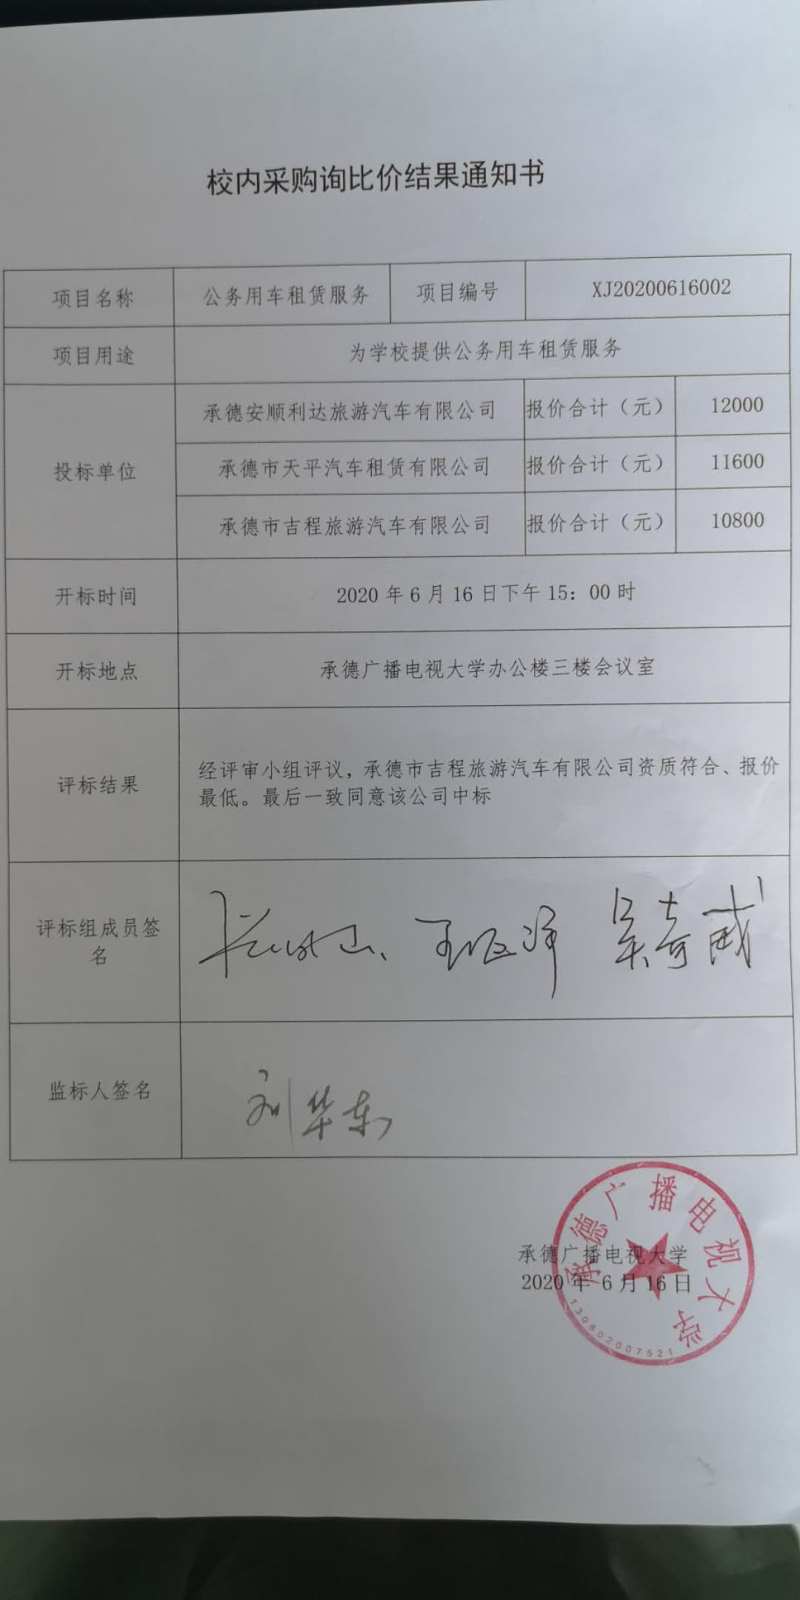 校内采购询比价结果通知书
项目名称 公务用车租赁服务 项目编号 XJ20200616002
项目用途 为学校提供公务用车租赁服务
投标单位
承德安顺利达旅游汽车有限公司 报价合计（元） 12000
承德市天平汽车租赁有限公司 报价合计（元） 11600
承德市吉程旅游汽车有限公司 报价合计（元） 10800
开标时间 2020 年 6 月 16 日下午 15：00 时
开标地点 承德广播电视大学办公楼三楼会议室
评标结果
经评审小组评议，承德市吉程旅游汽车有限公司资质符合、报价
最低。最后一致同意该公司中标
评标组成员签
名
吴奇威
监标人签名 刘华东
承德广播电视大学
2020 年 6 月 16 日
承德广播电视大学
1308020007521